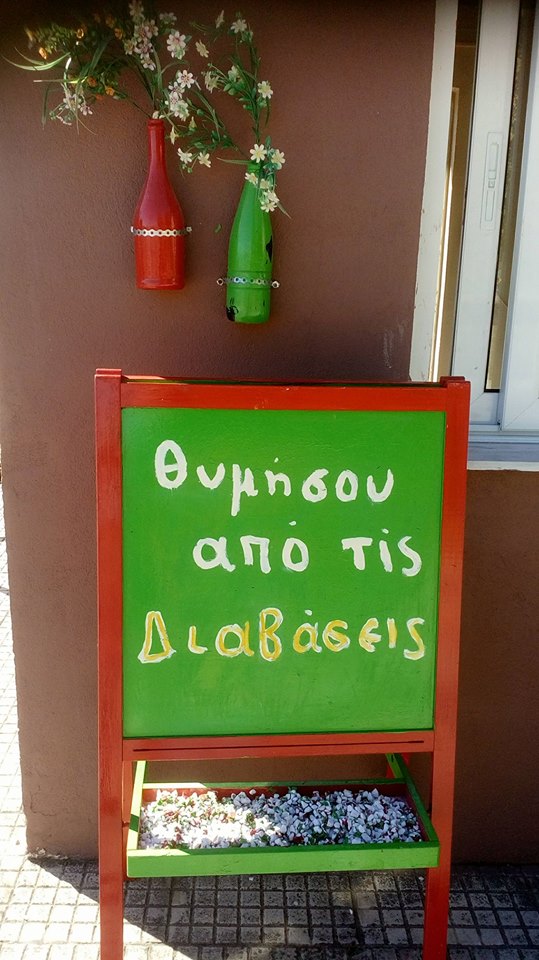 Θυμήσου
από τις
Διαβάσεις